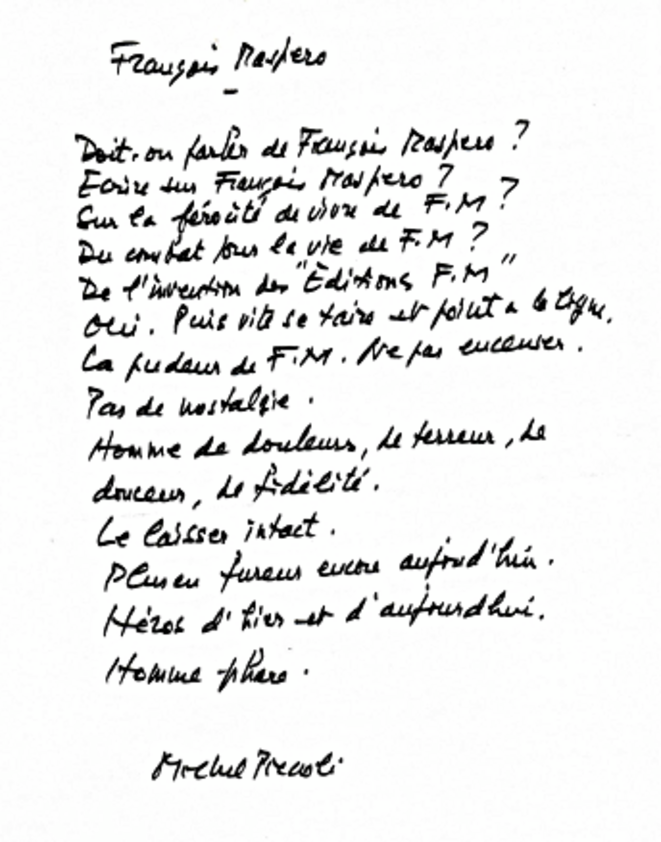 François Maspero
Doit-on parler de François Maspero ?
Ecrire sur François Maspero ?
Sur la férocité de vivre de F.M ?
Du combat pour la vie de F.M ?
De l'invention des "Éditions F.M"
Oui. Puis vite se taire et point à la ligne.
La pudeur de F.M. Ne pas encenser.
Pas de nostalgie.
Homme de douleurs, de terreur, de
douceur, de fidélité.
Le laisser intact.
fureur encore aujourd'hui.
Héros d'hier et d'aujourdhui.
Homme phare.
Michel Piccoli